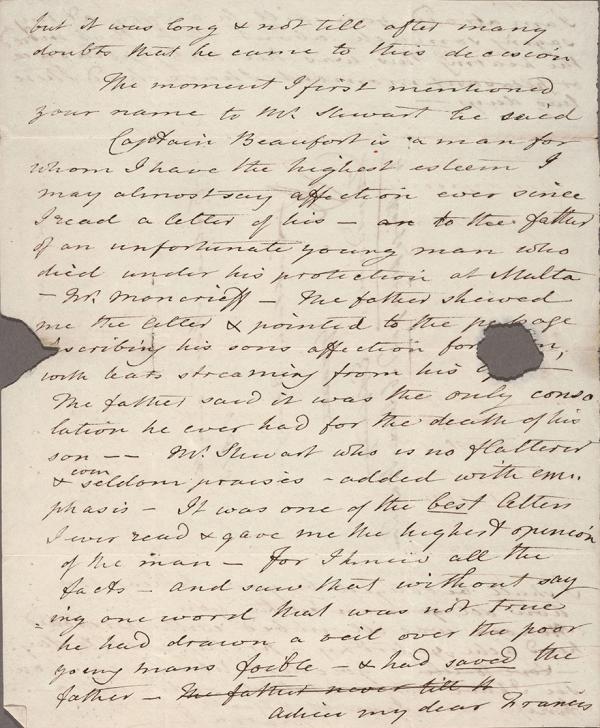 but it was long & not till after many
doubts that he came to this decision
The moment I first mentioned
your name to Mr. Stewart he said
Captain Beaufort is a man for
whom I have the highest esteem I
may almost say affection ever since
I read a letter of his – an to the father
of an unfortunate young man who
died under his protection at Malta
– Mr. Moncrieff – The father shewed
me the letter & pointed to the passage
describing his sons affection for
with tears streaming from his
The father said it was the only conso
lation he ever had for the death of his
son – – Mr. Stewart who is no flatterer
even
& seldom praises – added with em:
phasis – It was one of the best letters
I ever read & gave me the highest opinion
of the man – for I knew all the
facts – and saw that without say
=ing one word that was not true
he had drawn a veil over the poor
young mans foible – & had saved the
father – The father never till
Adieu my dear Francis